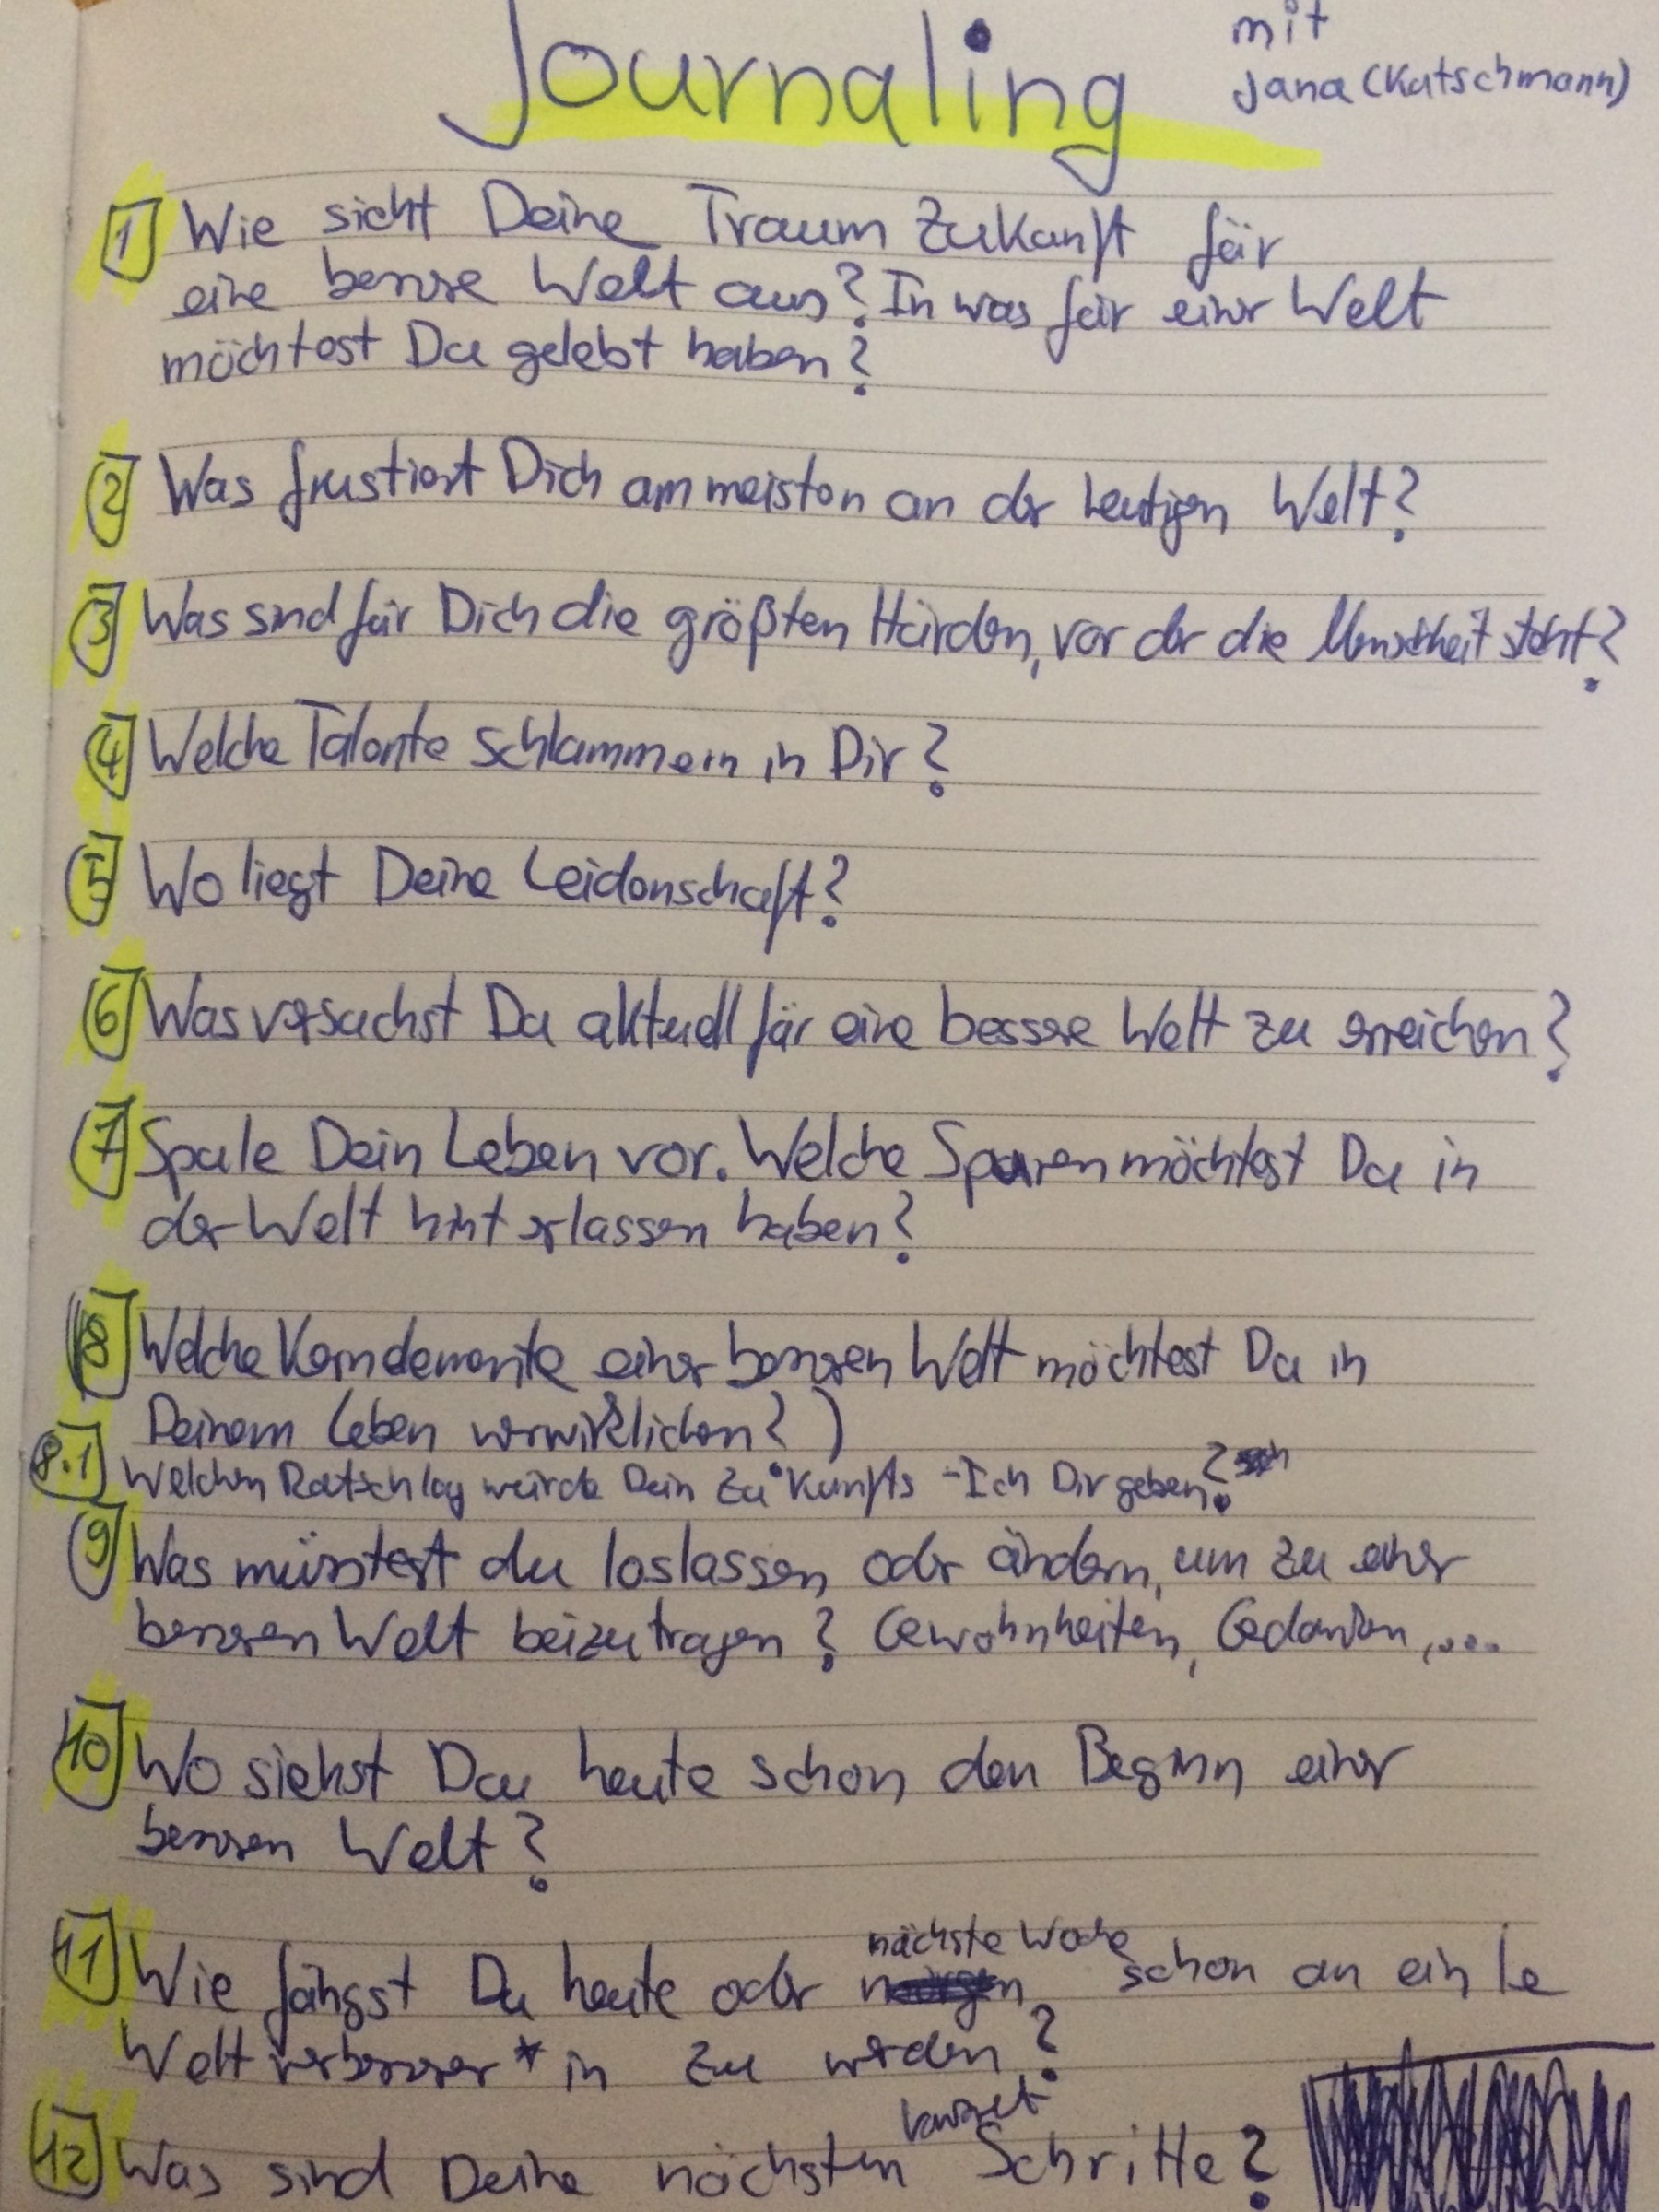 Journaling
mit
Jana (Katschmann)
1 Wie sieht Deine Traum Zukunft für
eine bessere Welt aus? In was für einer Welt
möchtest Du gelebt haben?
2 Was frustiert Dich am meisten an der heutigen Welt?
3 Was sind für Dich die größten Hürden, vor der die Menschheit steht?
4 Welche Talente schlummern in Dir?
5 Wo liegt Deine Leidenschaft?
6 Was versuchst Du aktuell für eine bessere Welt zu erreichen?
7 Spule Dein Leben vor. Welche Spuren möchtest Du in
der Welt hinterlassen haben?
8 Welche Kernelemente einer besseren Welt möchtest Du in
Deinem Leben verwirklichen?)
8.1 Welchen Ratschlag würde Dein Zukunfts-Ich Dir geben?
9 Was müsstest du loslassen oder ändern, um zu einer
besseren Welt beizutragen? Gewohnheiten, Gedanken,...
10 Wo siehst Du heute schon den Beginn einer
besseren Welt?
nächste Woche
11 Wie fängst Du heute oder morgen schon an ein/e
Weltverbesserer*in zu werden?
konkret
12 Was sind Deine nächsten Schritte?